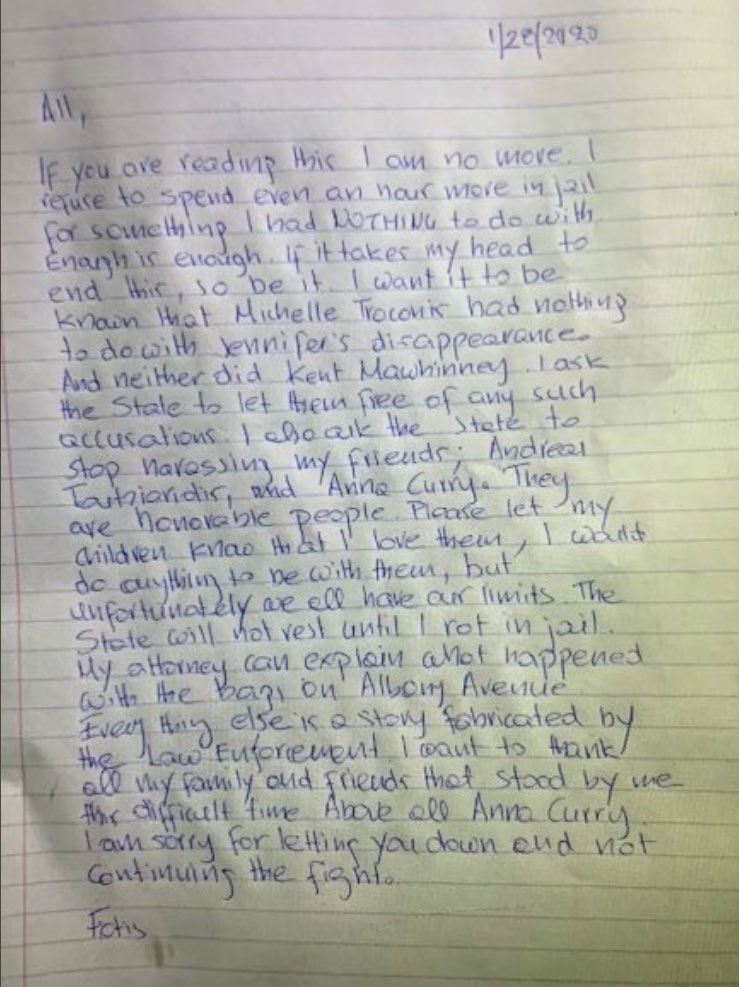 1/28/2020
All,
If you are reading this I am no more. I
refuse to spend even an hour more in jail
for something I had NOTHING to do with
Enough is enough. If it takes my head to
end this, so be it. I want it to be
known that Michelle Troconis had nothing
to do with Jennifer's disappearance.
And neither did Kent Mawhinney. I ask
the State to let them free of any such
accusations. I also ask the State to
stop harassing my friends; Andreas
Toutziaridis, and Anna Curry. They
are honorable people. Please let my
children know that I love them, I would
do anything to be with them, but
unfortunately we all have our limits. The
State will not rest until I rot in jail.
My attorney can explain what happened
with the bags on Albany Avenue
Every thing else is a story fabricated by
the Law Enforcement. I want to thank
all my family and friends that stood by me
this difficult time. Above all Anna Curry.
I am sorry for letting you down and not
continuing the fight.
Fotis